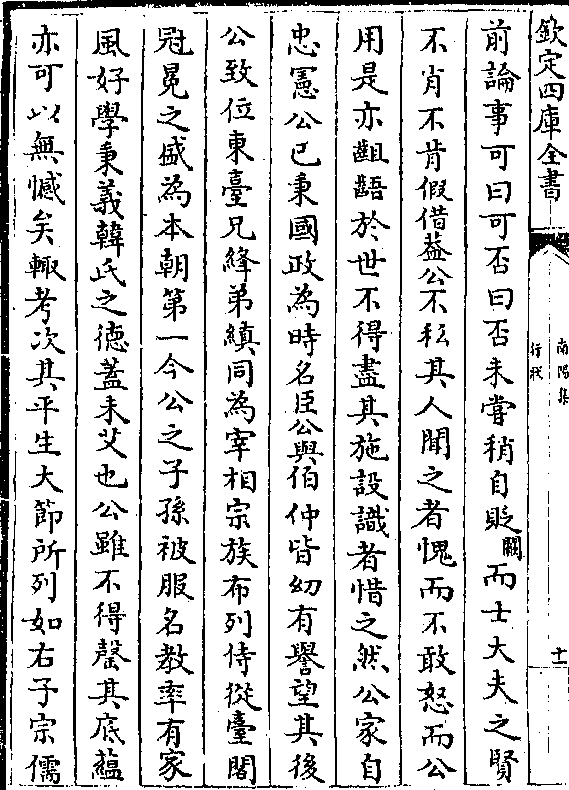 欽定四庫全書
南陽集
行狀
十一
前論事可曰可否曰否未嘗稍自貶闕而士大夫之賢
不肖不肯假借葢公不私其人聞之者愧而不敢怒而公
用是亦齟齬於世不得盡其施設識者惜之然公家自
忠憲公已秉國政為時名臣公與伯仲皆幼有譽望其後
公致位東臺兄絳弟縝同為宰相宗族布列侍從臺閣
冠冕之盛為本朝第一今公之子孫被服名教率有家
風好學秉義韓氏之德蓋未艾也公雖不得罄其底蘊
亦可以無憾矣輙考次其平生大節所列如右子宗儒